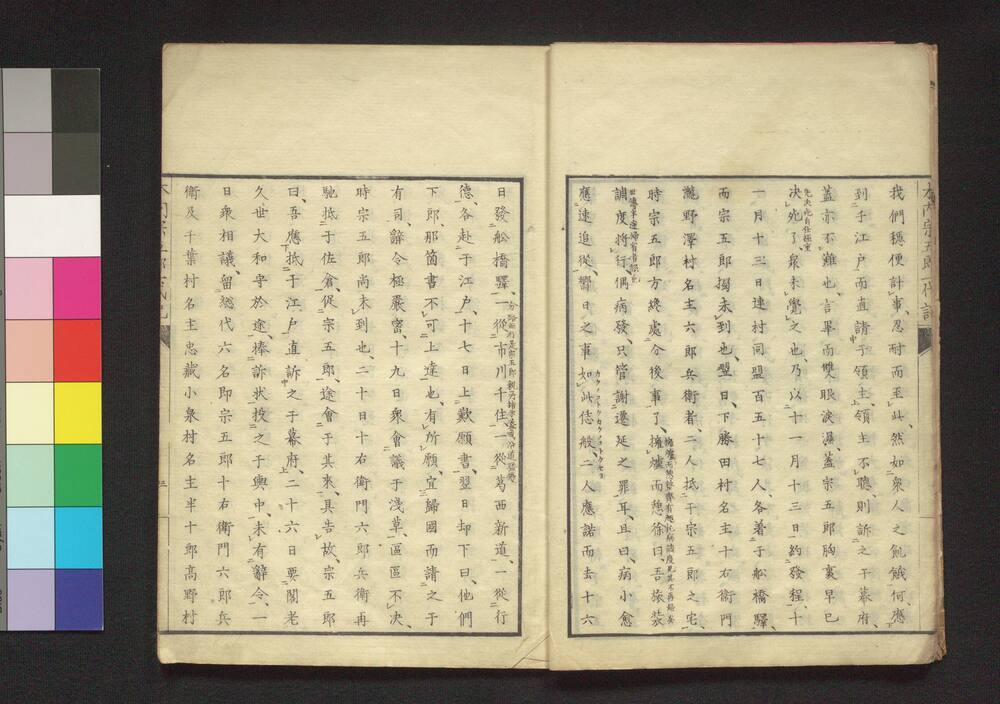 我們穩便計事忍耐而至此然如衆人之飢餓何應
到于江戸而直請于領主領主不聽則訴之于幕府
蓋亦不難也言畢而雙眼淚濕蓋宗五郎胸裏早已
決死了衆未覺之也乃以十一月十三日約發程十
一月十三日連村同盟百五十七人各着于舩橋驛
而宗五郎獨未到也翌日下勝田村名主十右衛門
瀧野澤村名主六郎兵衛者二人抵于宗五郎之宅
時宗五郎方終處分後事了擁爐而憩徐曰吾旅裝
調度將行偶病發只管謝遷延之罪耳且曰病小愈
應速追從嚮日之事如此恁般二人應諾而去十六
日發舩橋驛一從市川千住一從葛西新道一從行
德各赴于江戸十七日上歎願書翌日却下曰他們
下郎那箇書不可上達也有所願宜歸國而請之于
有司辭令極嚴密十九日衆會議于淺草區區不決
時宗五郎尚未到也二十日十右衛門六郎兵衛再
馳抵于佐倉促宗五郎途會于其來具告故宗五郎
曰吾應抵于江戸直訴之于幕府二十六日要閣老
久世大和守於途捧訴状投之于輿中未有辭令一
日衆相議留総代六名即宗五郎十右衛門六郎兵
衛及千葉村名主忠藏小泉村名主半十郎高野村